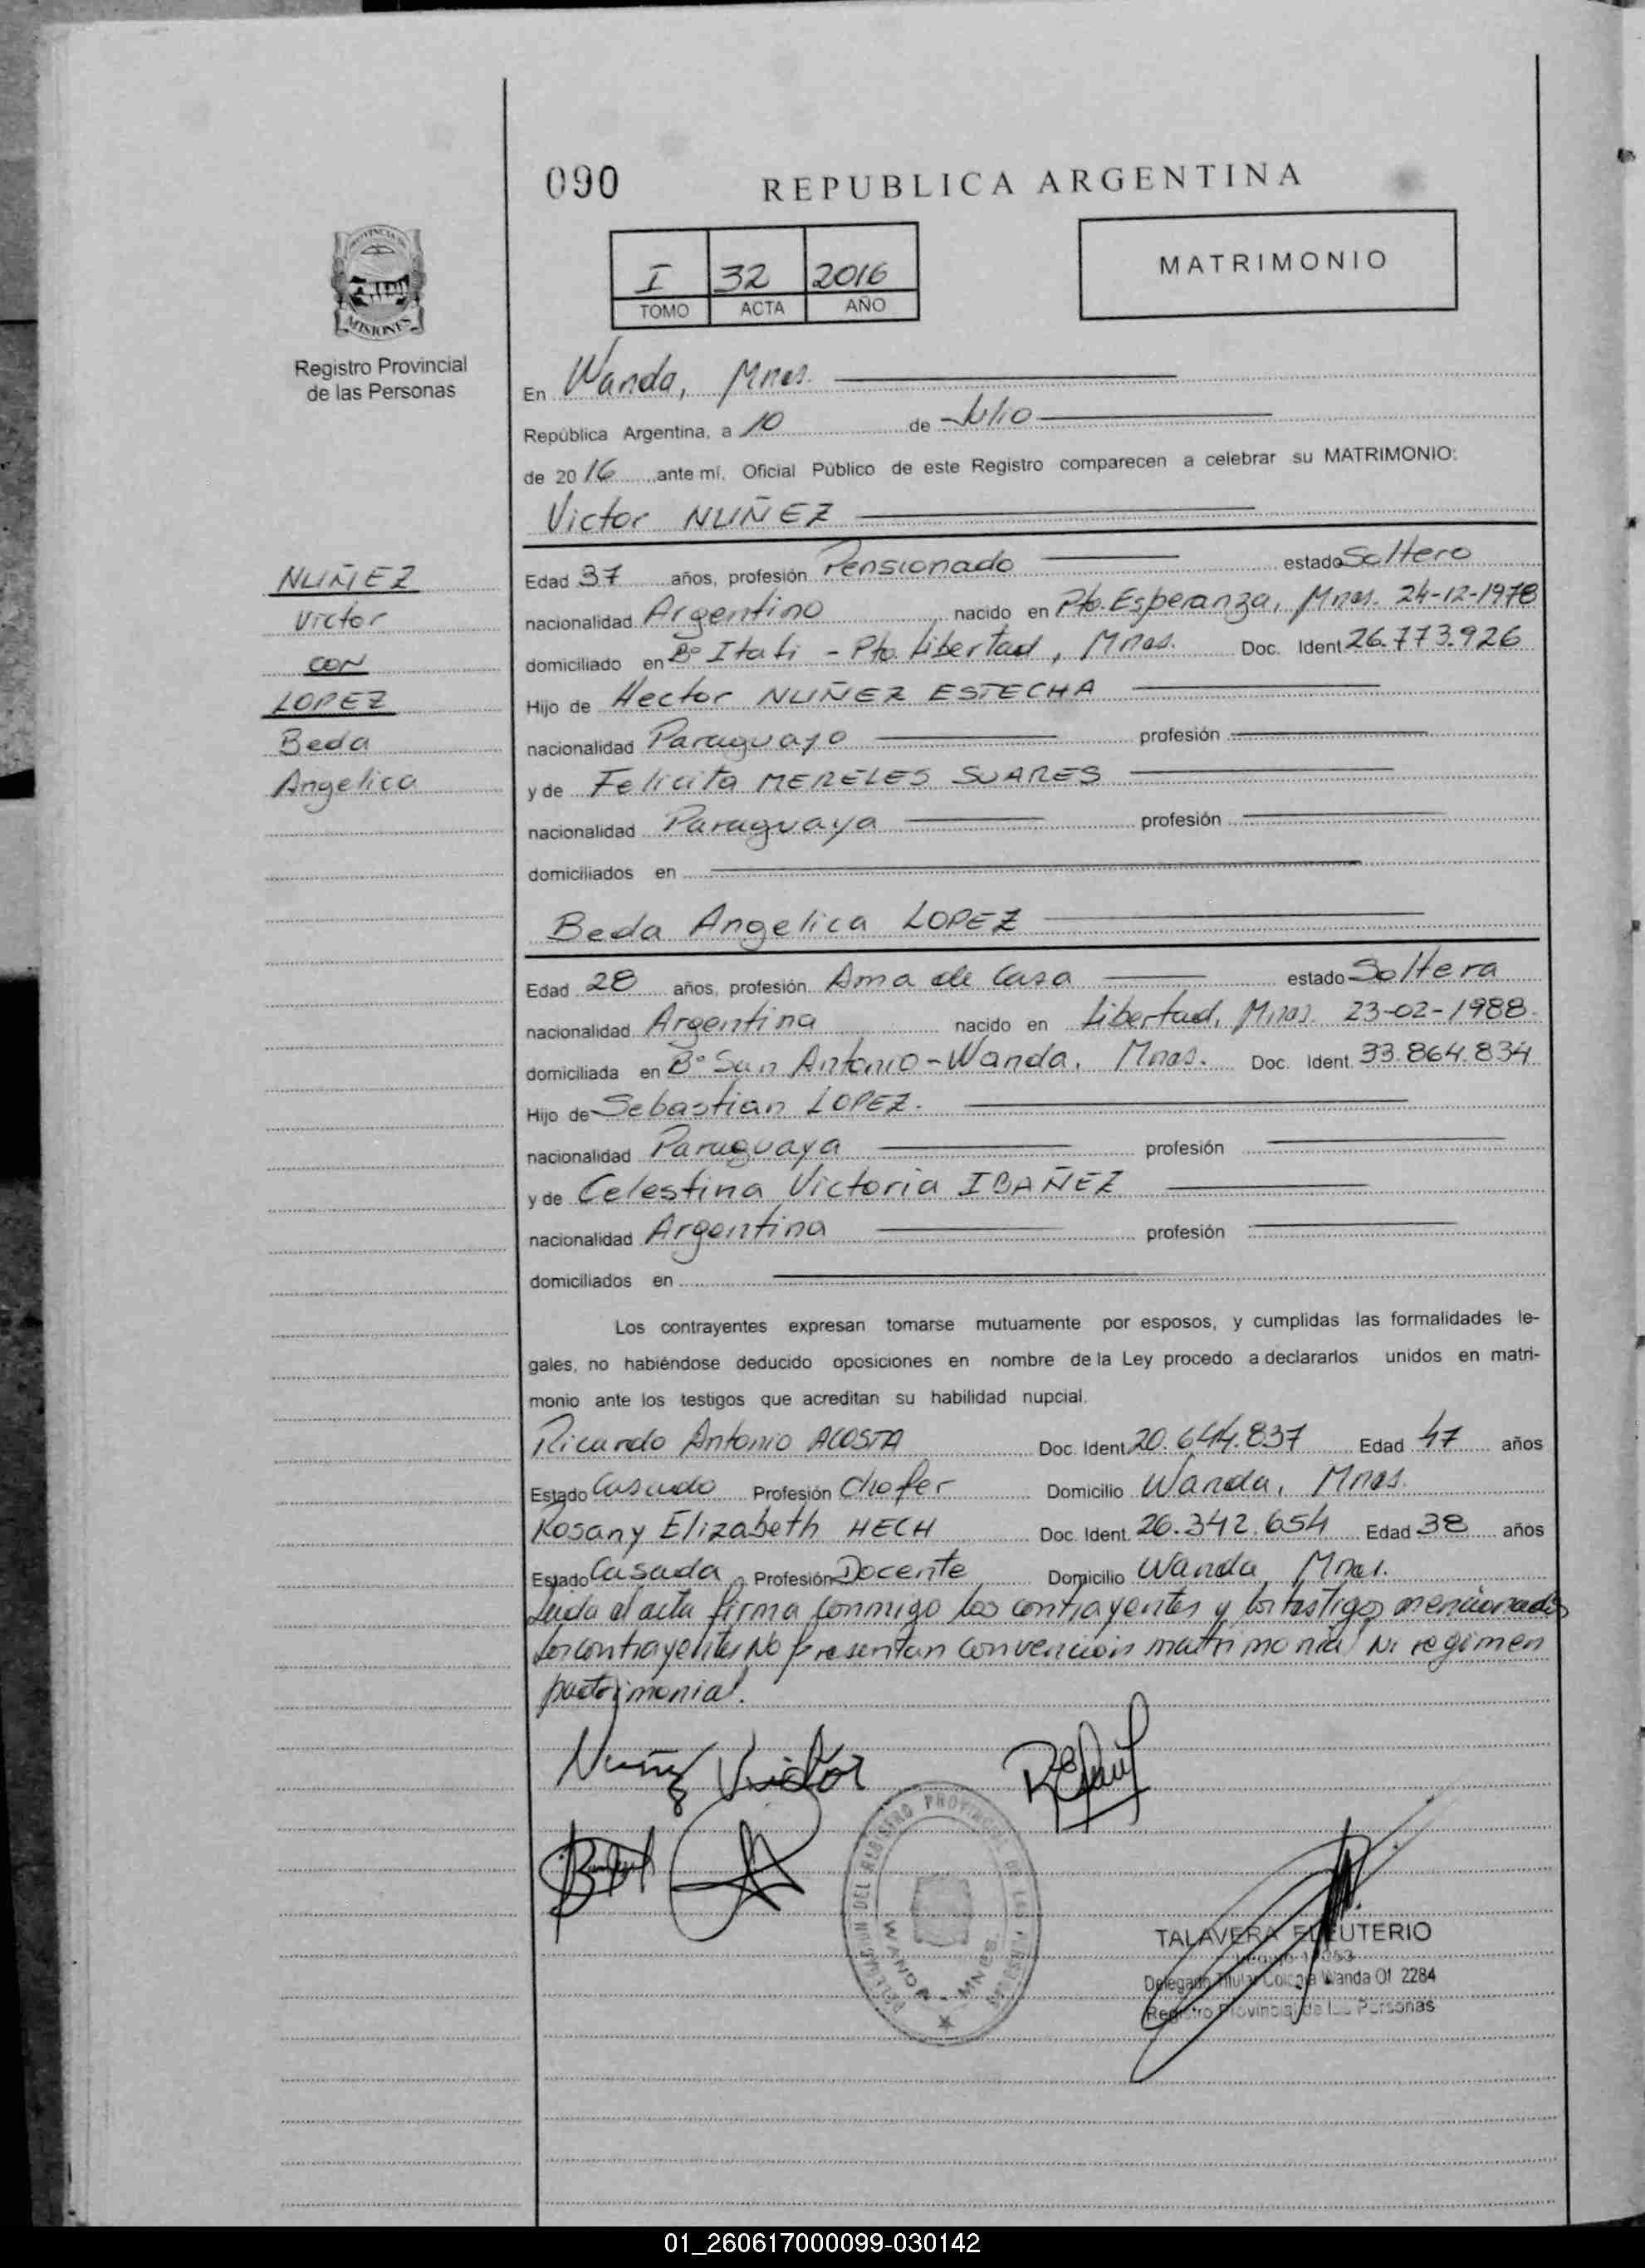 090 REPUBLICA ARGENTINA
I 32 2016
TOMO ACTA AÑO
MATRIMONIO
PROVINCIA DE
MISIONES
Registro Provincial
de las Personas
En Wanda, Mnes.
República Argentina, a 10 de Julio
de 2016 ante mí, Oficial Público de este Registro comparecen a celebrar su MATRIMONIO:
Victor NUÑEZ
NUÑEZ
Victor
CON
LOPEZ
Beda
Angelica
Edad 37 años, profesión Pensionado estado Soltero
nacionalidad Argentino nacido en Pto. Esperanza, Mnes. 24-12-1978
domiciliado en B° Itati - Pto. Libertad, Mnes. Doc. Ident 26.773.926
Hijo de Hector NUÑEZ ESTECHA
nacionalidad Paraguayo profesión
y de Felicita MERELES SUARES
nacionalidad Paraguaya profesión
domiciliados en
Beda Angelica LOPEZ
Edad 28 años, profesión Ama de Casa estado Soltera
nacionalidad Argentina nacido en Libertad, Mnes. 23-02-1988
domiciliada en B° San Antonio - Wanda, Mnes. Doc. Ident. 33.864.834
Hijo de Sebastian LOPEZ.
nacionalidad Paraguaya profesión
y de Celestina Victoria IBAÑEZ
nacionalidad Argentina profesión
domiciliados en
Los contrayentes expresan tomarse mutuamente por esposos, y cumplidas las formalidades le-
gales, no habiéndose deducido oposiciones en nombre de la Ley procedo a declararlos unidos en matri-
monio ante los testigos que acreditan su habilidad nupcial.
Ricardo Antonio ACOSTA Doc. Ident. 20.644.837 Edad 47 años
Estado Casado Profesión Chofer Domicilio Wanda, Mnes.
Rosany Elizabeth HECH Doc. Ident. 26.342.654 Edad 38 años
Estado Casada Profesión Docente Domicilio Wanda Mnes.
Leida el acta firma conmigo los contrayentes y los testigos mencionados
Los contrayentes No presentan convencion matrimonial Ni regimen
patrimonial.
Nuñez Victor
DELEGACION DEL REGISTRO PROVINCIAL DE LAS PERSONAS
WANDA - MNES.
TALAVERA ELEUTERIO
Delegado Titular Colonia Wanda Of 2284
Registro Provincial de las Personas
01_260617000099-030142